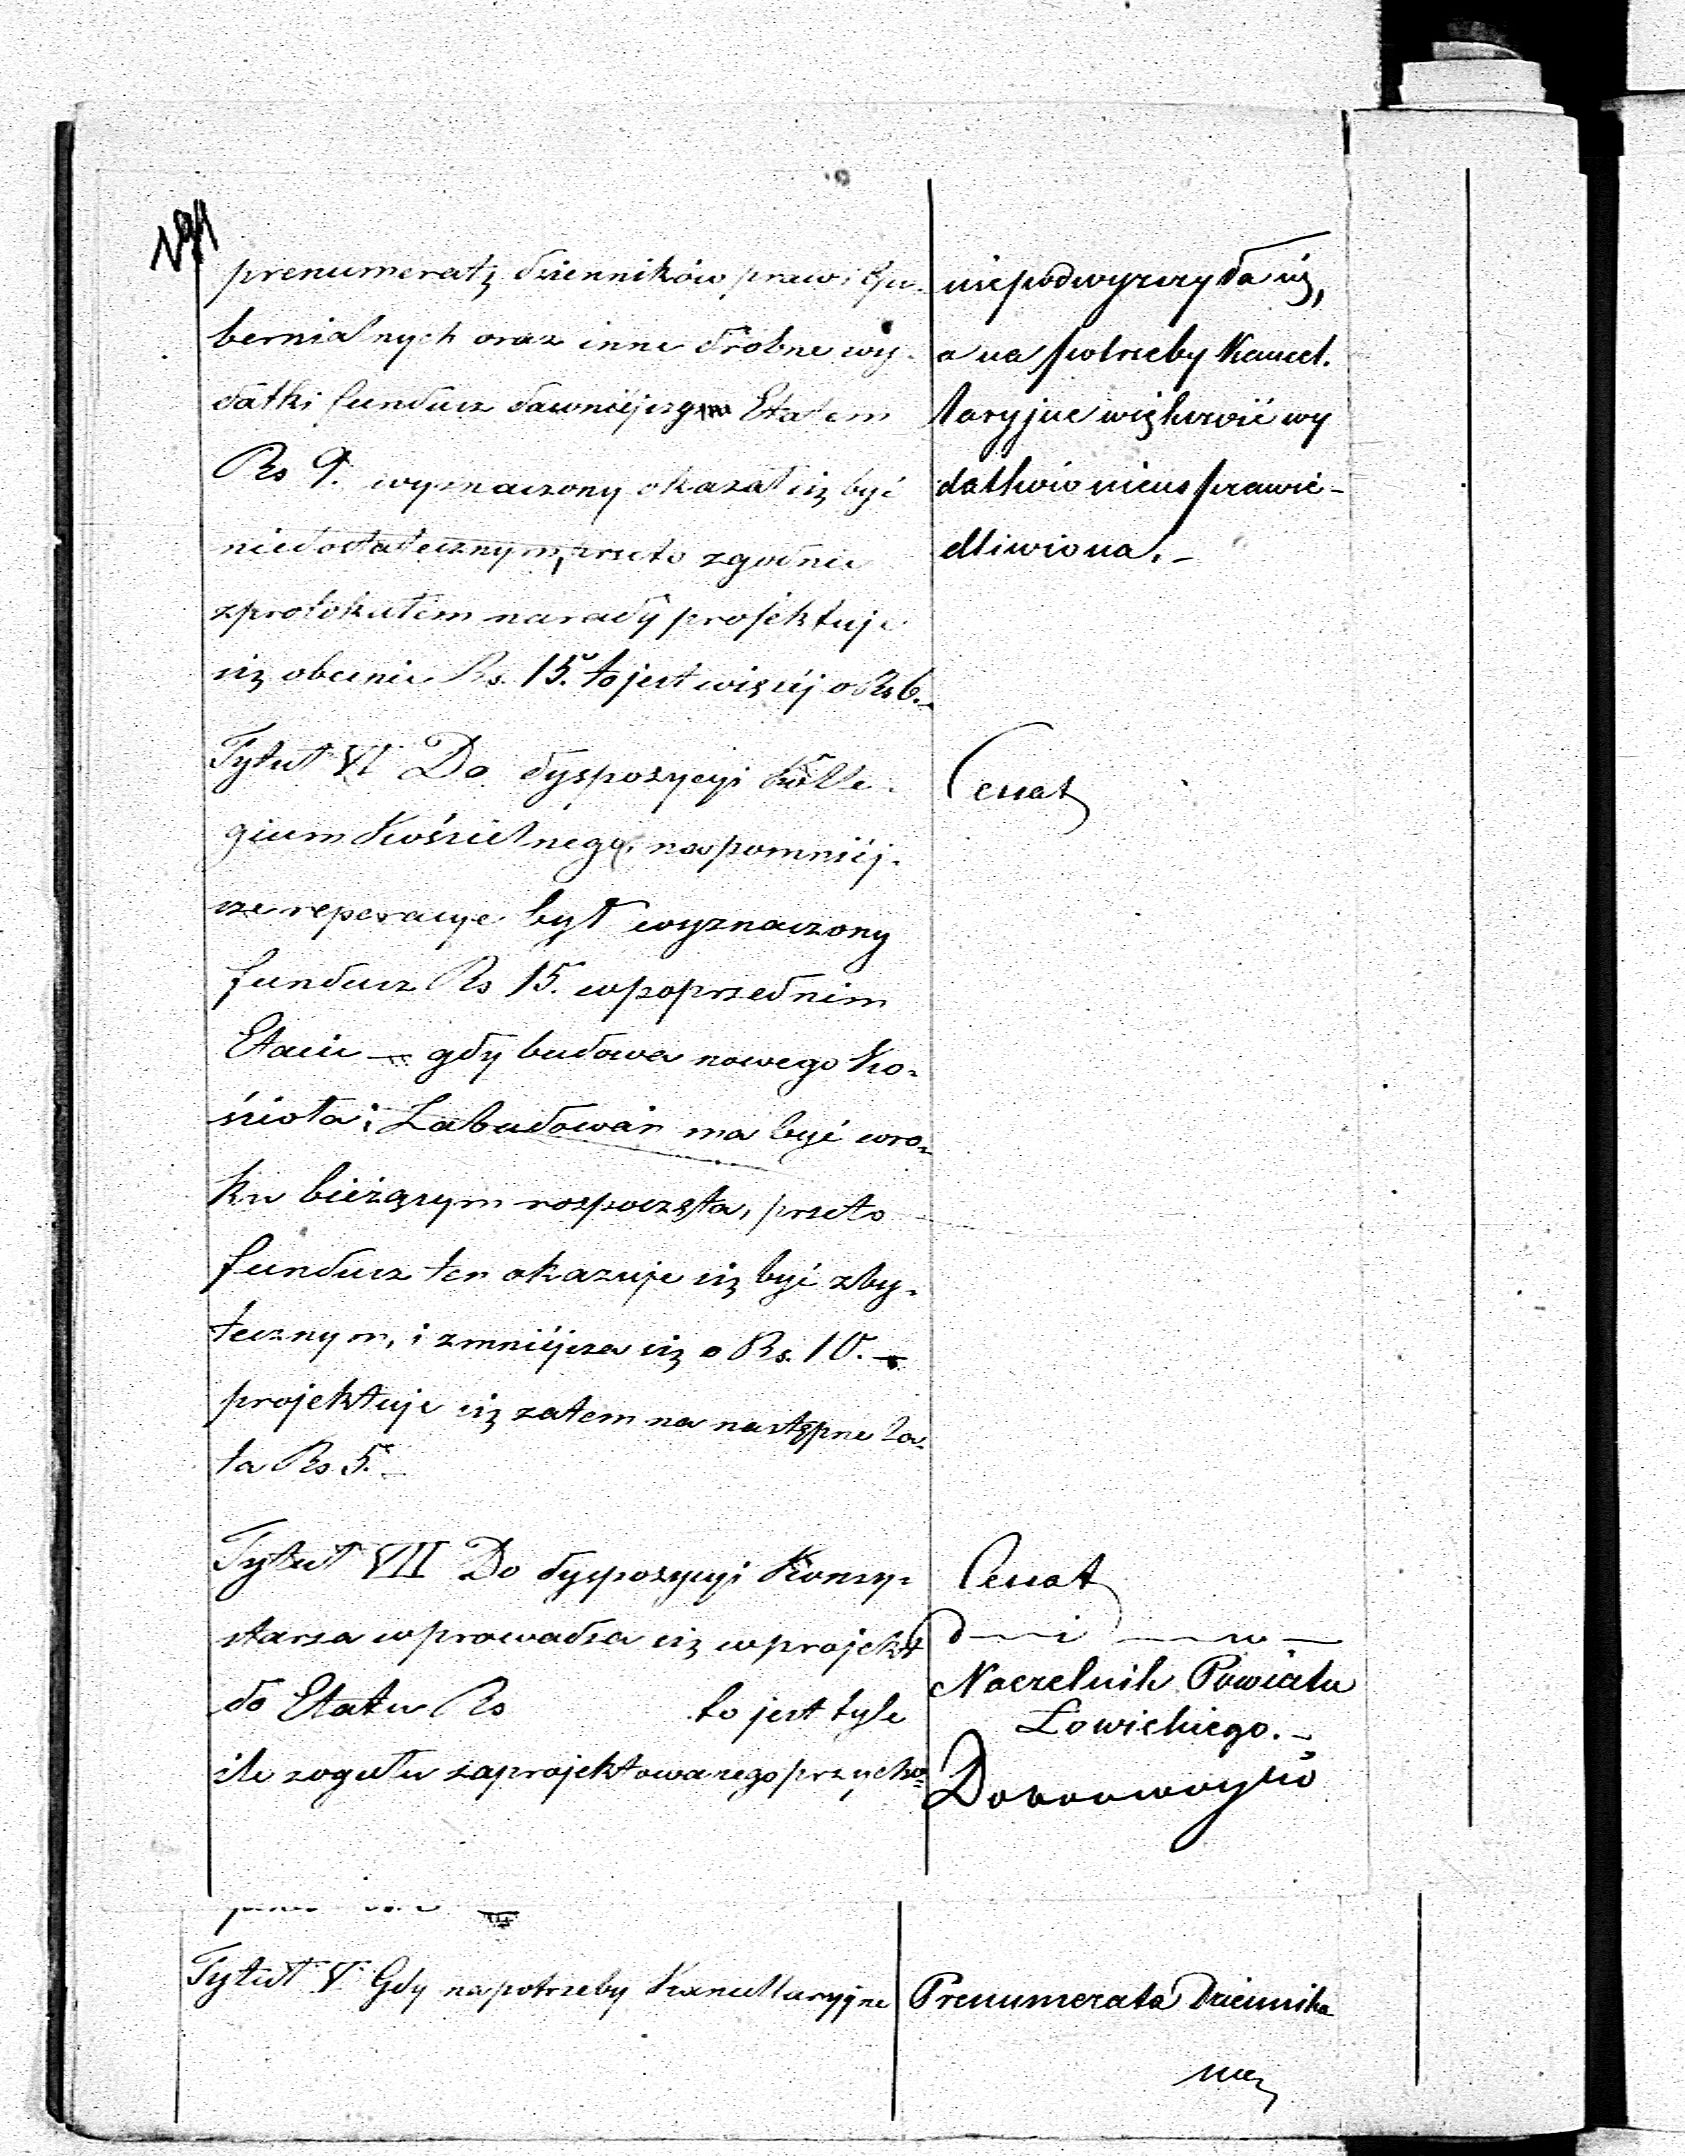 194
prenumeratę dzienników praw i Gu-
bernialnych oraz inne drobne wy-
datki fundusz dawniejszym Etatem
Rs 9. wyznaczony okazał się być
niedostatecznym, przeto zgodnie
z protokułem narady projektuje
się obecnie Rs. 15. to jest więcéj o Rs 6.-
Tytuł VI Do dyspozycyi Kolle-
gium Kościelnego na pomniéj-
sze reperacye był wyznaczony
fundusz Rs 15. w poprzednim
Etacie — gdy budowa nowego Ko-
ścioła i Zabudowań ma być w ro-
ku bieżącym rozpoczęta, przeto
fundusz ten okazuje się być zby-
tecznym, i zmniéjsza się o Rs. 10. —
projektuje się zatem na następne la-
ta Rs 5. —
Tytuł VII Do dyspozycyi Konsy-
starza wprowadza się w projekt
do Etatu Rs to jest tyle
ile z ogółu zaprojektowanego przycho-
niepodwyższyła się,
a na potrzeby Kancel-
laryjne większość wy
datków nieusprawie-
dliwiona. -
Cessat
Cessat
Naczelnik Powiatu
Łowickiego. -
Tytuł V Gdy na potrzeby Kancellaryjne
Prenumerata Dziennika